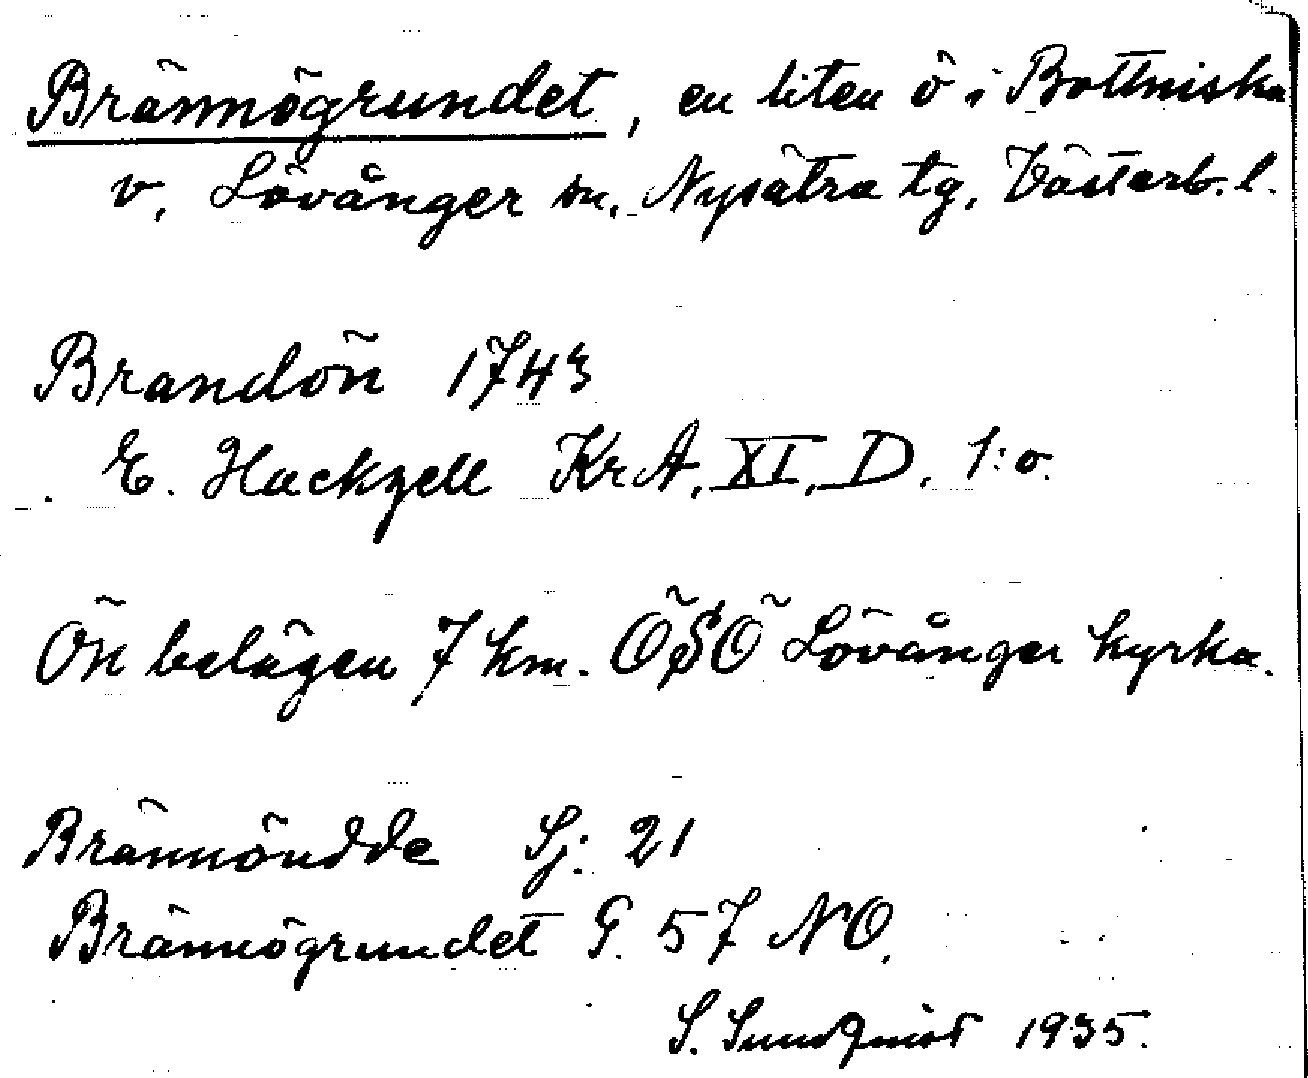 Brännögrundet, en liten ö i Bottniska
v. Lövånger sn. Nysätra tg. Västerb. l.
Brandön 1743
E. Hackzell KrA. XI. D. 1:o.
Ön belägen 7 km. ÖSÖ Lövånger kyrka.
Brännöudde Sj. 21
Brännögrundet G. 57 NO.
S. Sundqvist 1935.